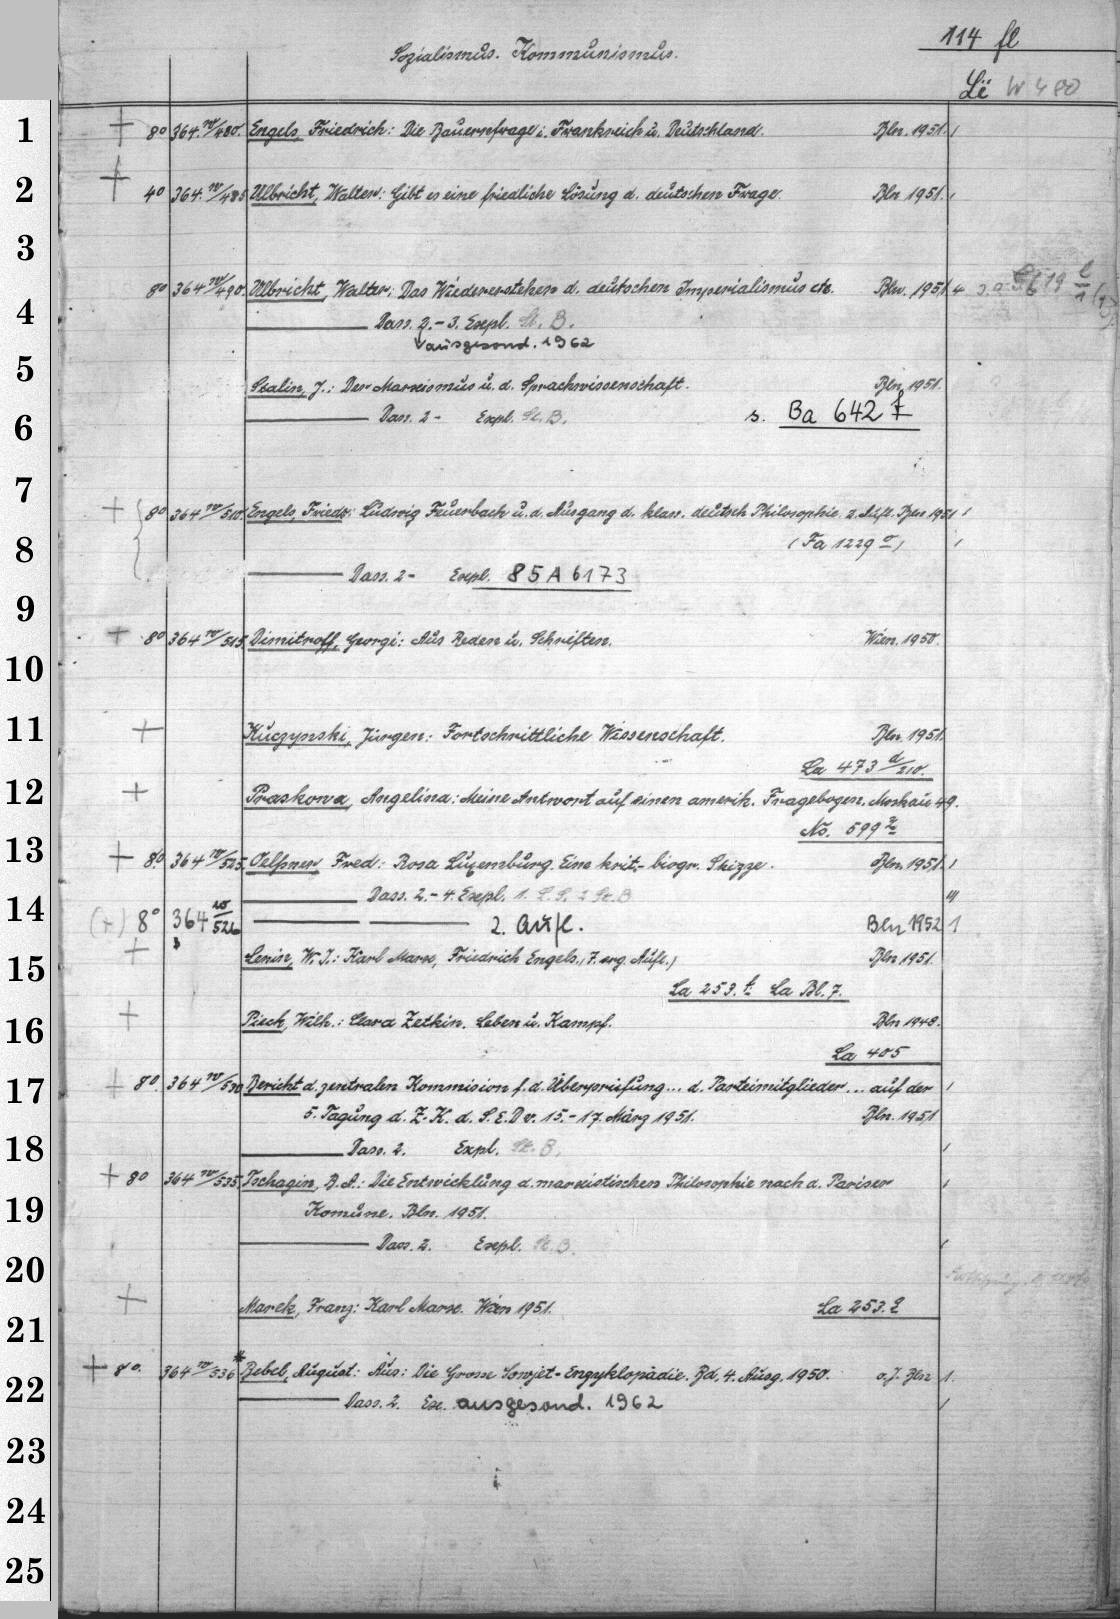 114 fl
Sozialismus. Kommunismus.
Lë W 480
1 + 8° 364. w/480. Engels, Friedrich: Die Bauernfrage i. Frankreich u. Deutschland. Bln. 1951. /
2 + 4° 364. w/485 Ulbricht, Walter: Gibt es eine friedliche Lösung d. deutschen Frage. Bln 1951. /
3
8° 364 w/490. Ulbricht, Walter: Das Wiedererstehen d. deutschen Imperialismus etc. Bln. 1951 4
4 Dass. 2.-3. Expl. St. B.
ausgesond. 1962
5 Stalin, J.: Der Marxismus u. d. Sprachwissenschaft. Bln. 1951.
6 Dass. 2- Expl. St. B. s. Ba 642 f
7
+ 8° 364 w/510. Engels, Friedr: Ludwig Feuerbach u. d. Ausgang d. klass. deutsch Philosophie. 2. Aufl. Bln 1951 /
8 (Fa 1229 o) /
Dass. 2- Expl. 85 A 6173
9
+ 8° 364 w/515. Dimitroff, Georgi: Aus Reden u. Schriften. Wien. 1950.
10
11 + Kuczynski, Jürgen: Fortschrittliche Wissenschaft. Bln. 1951.
La 473 d/210.
12 + Praskowa, Angelina: Meine Antwort auf einen amerik. Fragebogen. Moskau 49.
No. 599
13 + 8° 364 w/525. Oelßner, Fred: Rosa Luxemburg. Eine krit.- biogr. Skizze. Bln. 1951. /
Dass. 2.- 4. Expl. St. B
14 (+) 8° 364 w/526 2. Aufl. Bln 1952 1
15 + Lenin, W. I.: Karl Marx, Friedrich Engels. (7. erg. Aufl.) Bln 1951.
La 253. t. La Bl. 7.
16 + Pieck, Wilh.: Clara Zetkin. Leben u. Kampf. Bln 1948.
La 405
17 + 8° 364 w/530 Bericht d. zentralen Kommision f. d. Überprüfung... d. Parteimitglieder... auf der /
5. Tagung d. Z. K. d. S. E. D v. 15.-17. März 1951. Bln. 1951
18 Dass. 2. Expl. St. B. /
+ 8° 364 w/535 Tschagin, B. A.: Die Entwicklung d. marxistischen Philosophie nach d. Pariser /
19 Komune. Bln. 1951.
Dass. 2. Expl. St. B. /
20
+ Marek, Franz: Karl Marx. Wien 1951. La 253.
21
+ 8°. 364 w/536* Bebel, August: Aus: Die Grosse Sowjet-Enzyklopädie. Bd. 4. Ausg. 1950. o. J. Bln 1.
22 Dass. 2. Ex. ausgesond. 1962 /
23
24
25